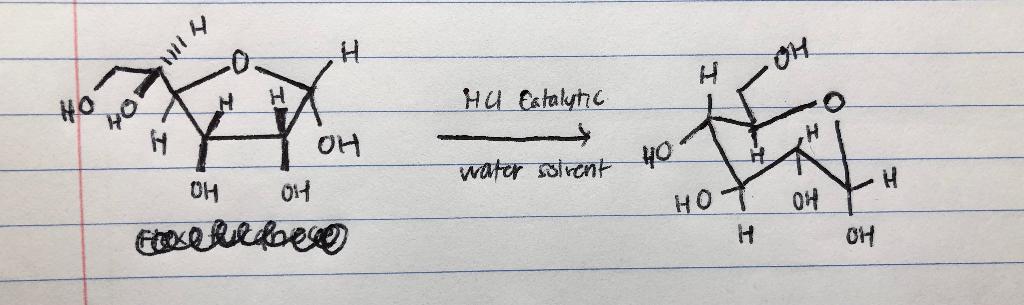 H
O
H
HO
HO
H
H
H
OH
OH
OH
HCl Catalytic
water solvent
OH
H
O
HO
H
H
H
HO
OH
H
OH